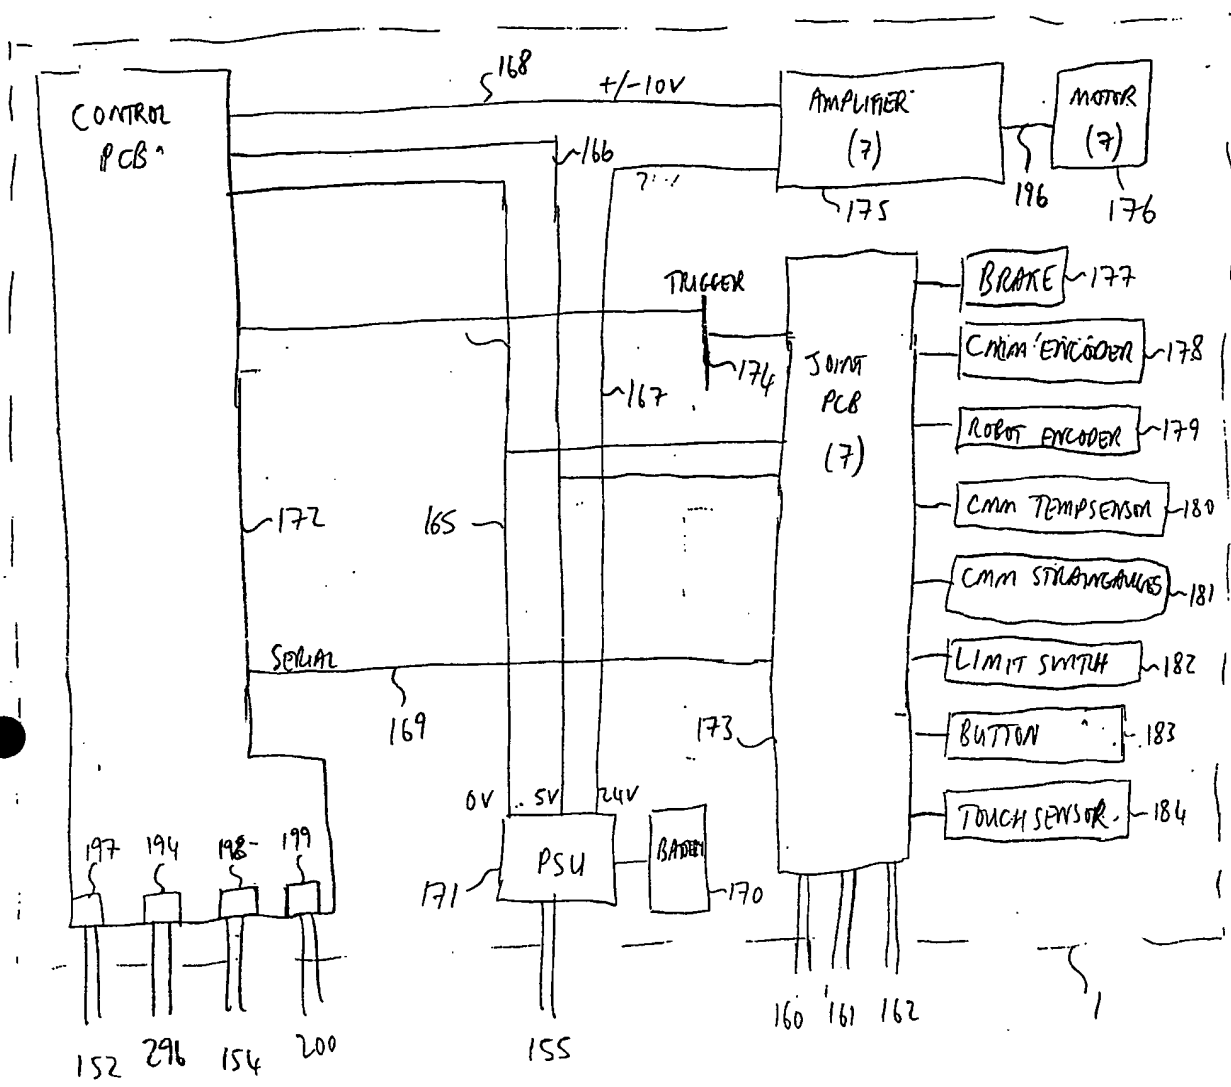 168
+/-10V
CONTROL
PCB
AMPLIFIER
(7)
MOTOR
(7)
166
175
196
176
TRIGGER
BRAKE
177
174
JOINT
PCB
(7)
CMM ENCODER
178
167
ROBOT ENCODER
179
172
165
CMM TEMPSENSOR
180
CMM STRAINGAUGES
181
SERIAL
169
LIMIT SWITCH
182
173
BUTTON
183
0V
5V
24V
TOUCH SENSOR
184
197
194
198
199
PSU
BATTERY
171
170
160
161
162
1
152
296
154
200
155